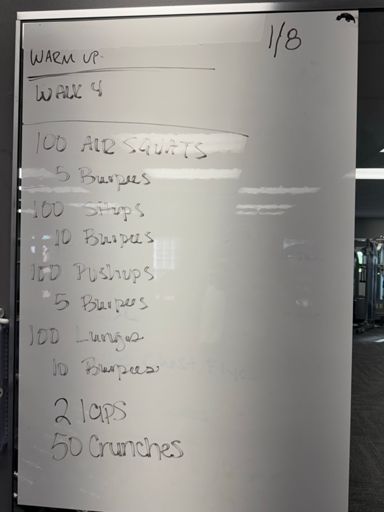 1/8
WARM UP-
WALK 4
100 AIR SQUATS
5 Burpees
100 Situps
10 Burpees
100 Pushups
5 Burpees
100 Lunges
10 Burpees
2 laps
50 Crunches